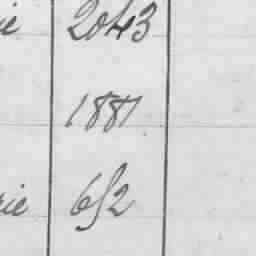 ie 2043
1881
rie 652